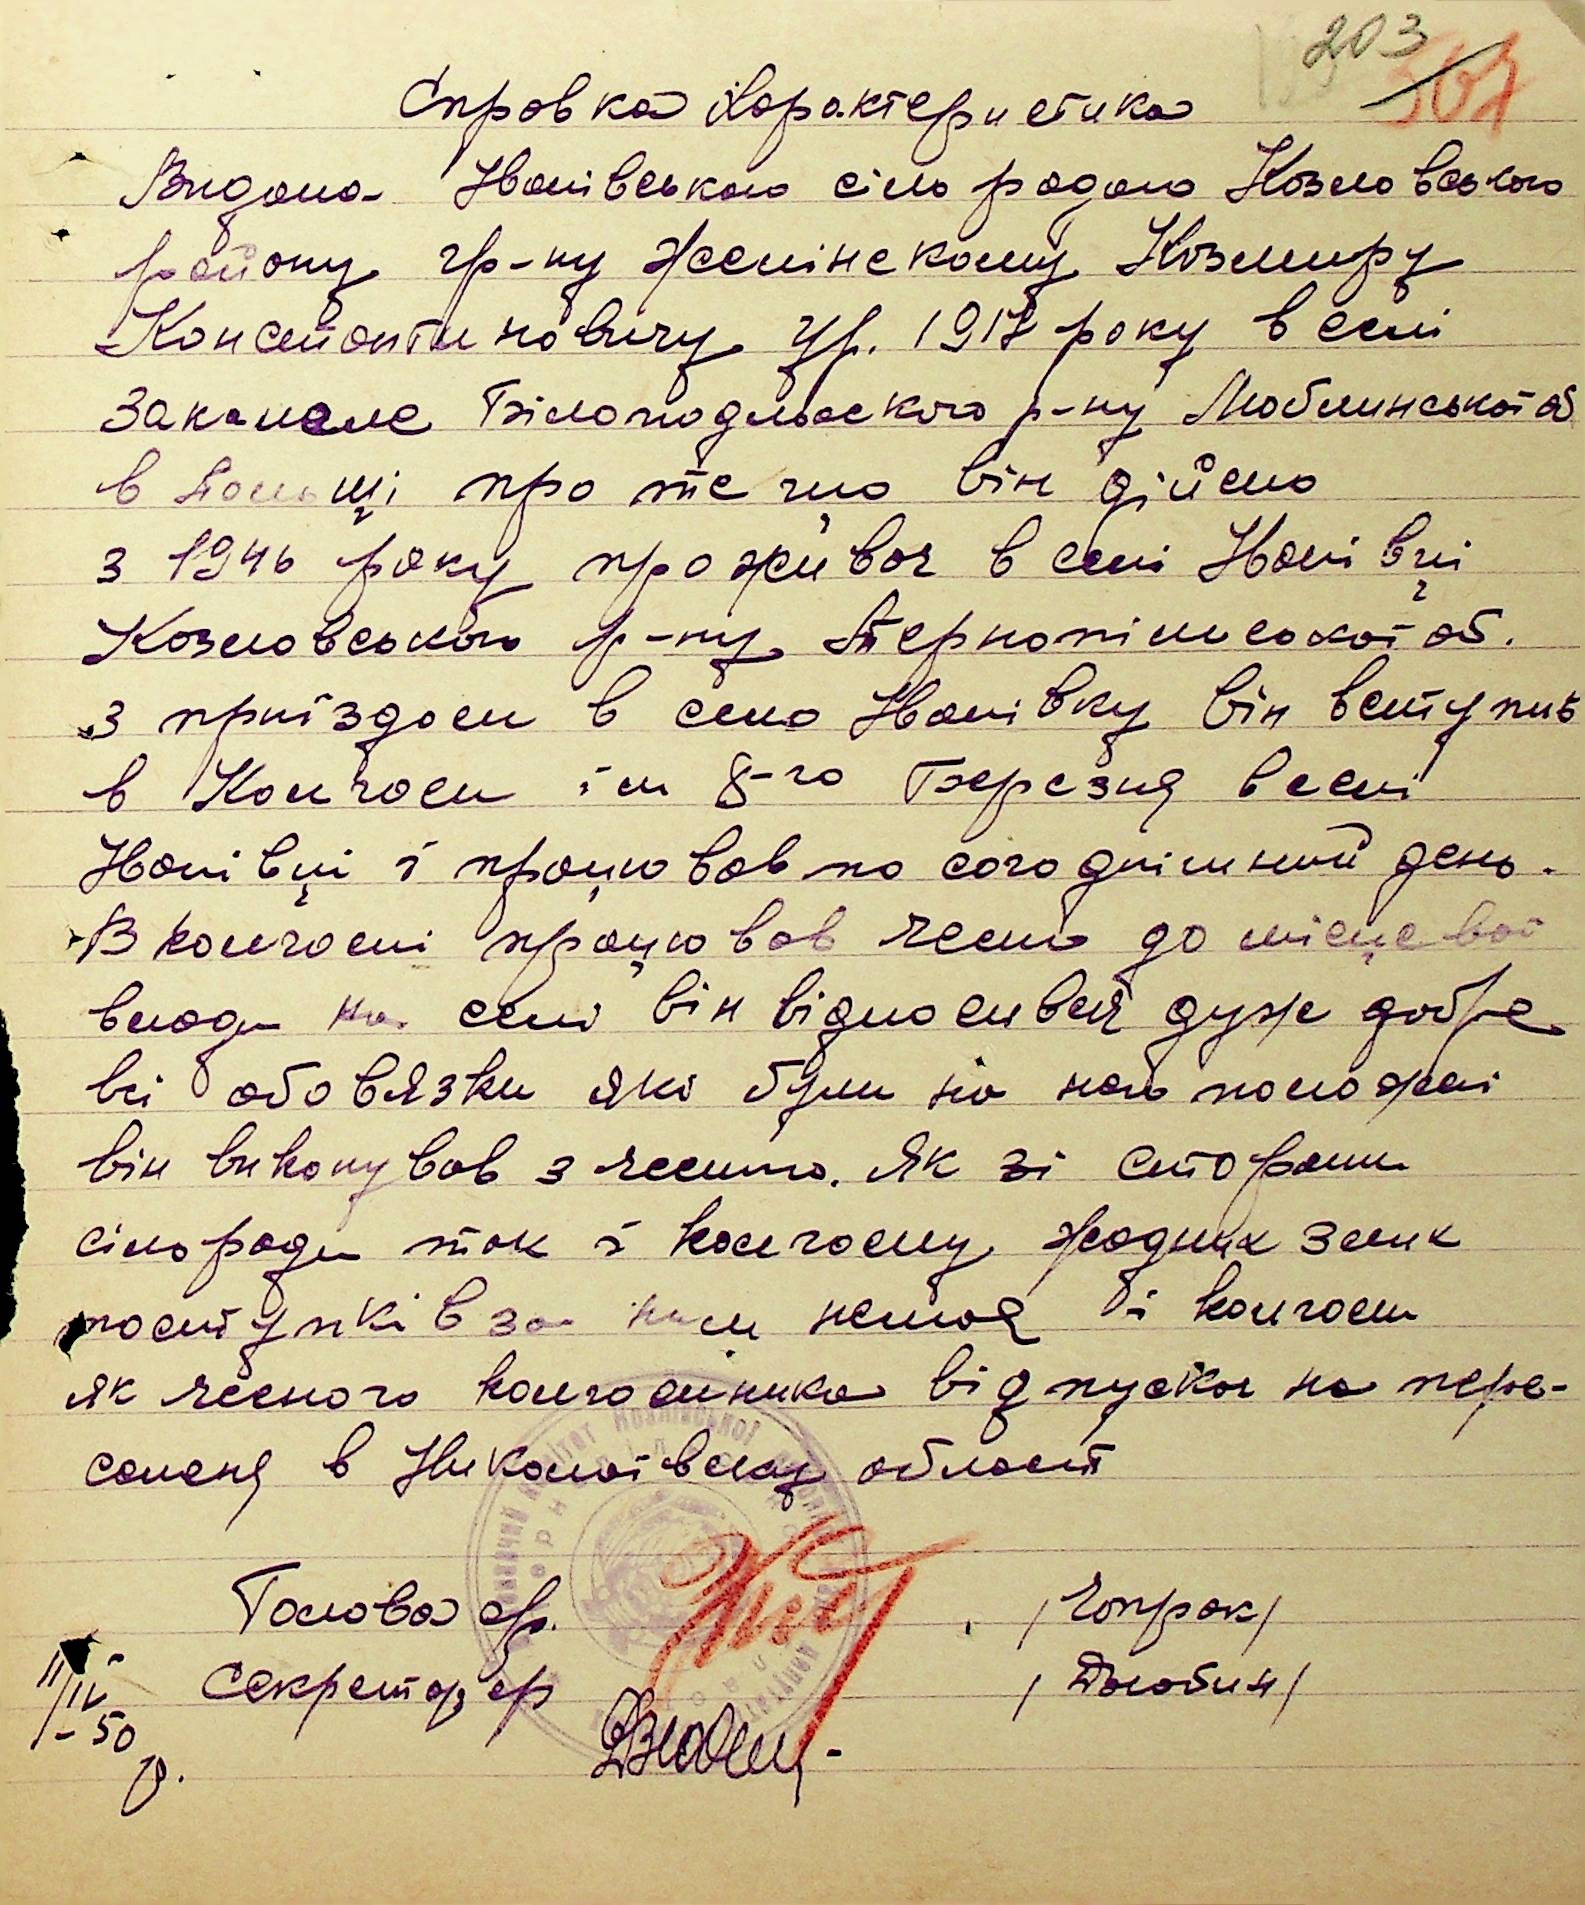 203
307
Справка Характеристика
Видана Ивачівською сіль радою Козловського
району гр-ну Желінскому Козмиру
Константиновичу ур. 1917 року в селі
Закалале Білоподляского р-ну Люблинської об
в Польщі про те що він дійсно
з 1946 року проживає в селі
Козловського р-ну Тернопільської об.
з приїздом в село він вступив
в Колгосп ім 8-го Березня в селі
і працював по согоднішний день.
В колгоспі працював чесно до місцевої
влади на селі він відносився дуже добре
всі обовязки які були на нього положені
він виконував з честтю. Як зі сторони
сільради так і колгоспу жодних злих
поступків за ним немає і колгосп
як чесного колгоспника відпускає на пере-
селеня в Николаївску область
Голова с/р. /Чопрак/
Секретар с/р /Дзюбин/
11/IV
-50
р.